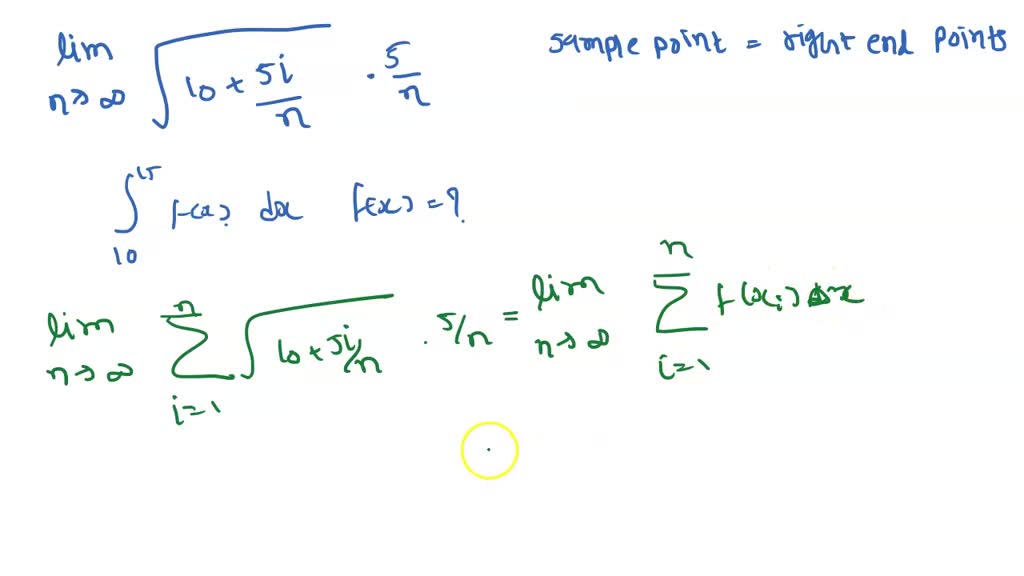 lim n→∞ √(10 + 5i/n) · 5/n
sample point = right end points
∫₁₀¹⁵ f(x) dx f(x) = ?
lim n→∞ Σ i=1 n √(10 + 5i/n) · 5/n = lim n→∞ Σ i=1 n f(xᵢ) Δx